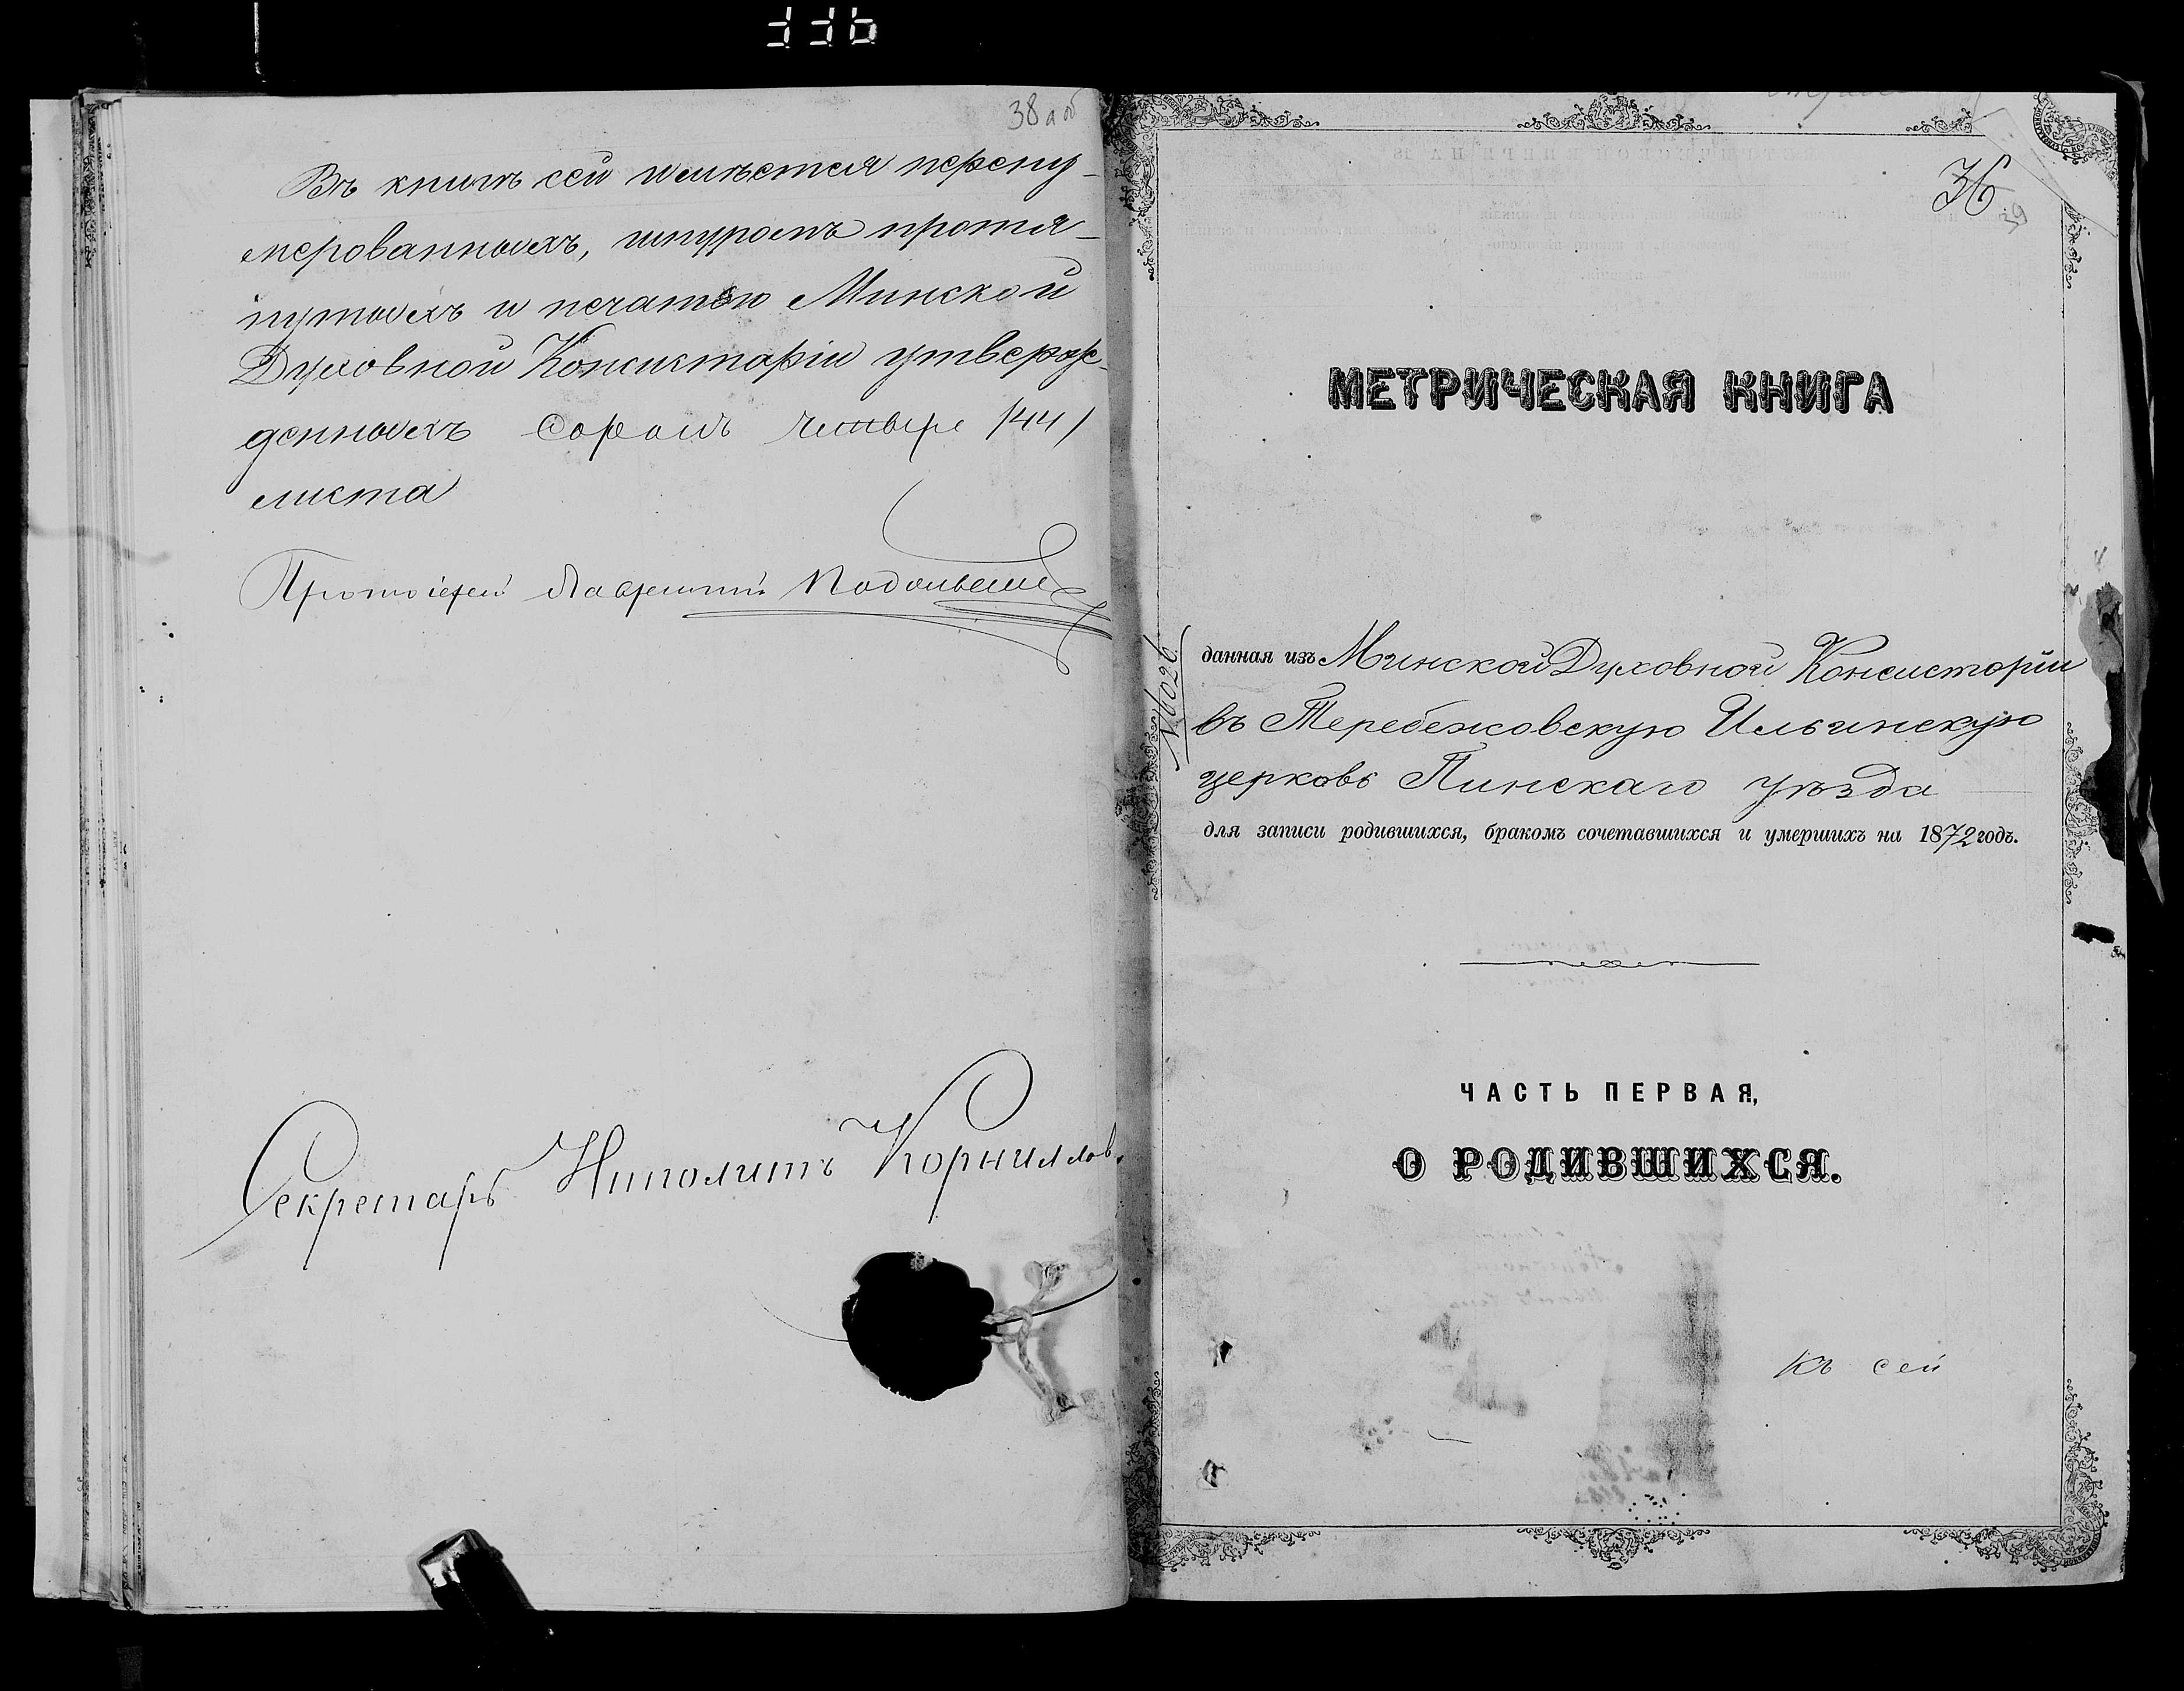 336
38 а об
Въ книгѣ сей имѣется перену-
мерованныхъ, шнуромъ протя-
нутыхъ и печатью Минской
Духовной Консисторіи утверж-
денныхъ сорокъ четыре /44/
листа
Протоіерей Лаврентій
Секретарь Иполитъ Корниллов.
36
39
МЕТРИЧЕСКАЯ КНИГА
№ 6026
данная изъ Минской Духовной Консисторіи
въ Теребежовскую Ильинскую
церковь Пинскаго уѣзда
для записи родившихся, бракомъ сочетавшихся и умершихъ на 1872 годъ.
ЧАСТЬ ПЕРВАЯ,
О РОДИВШИХСЯ.
Къ сей